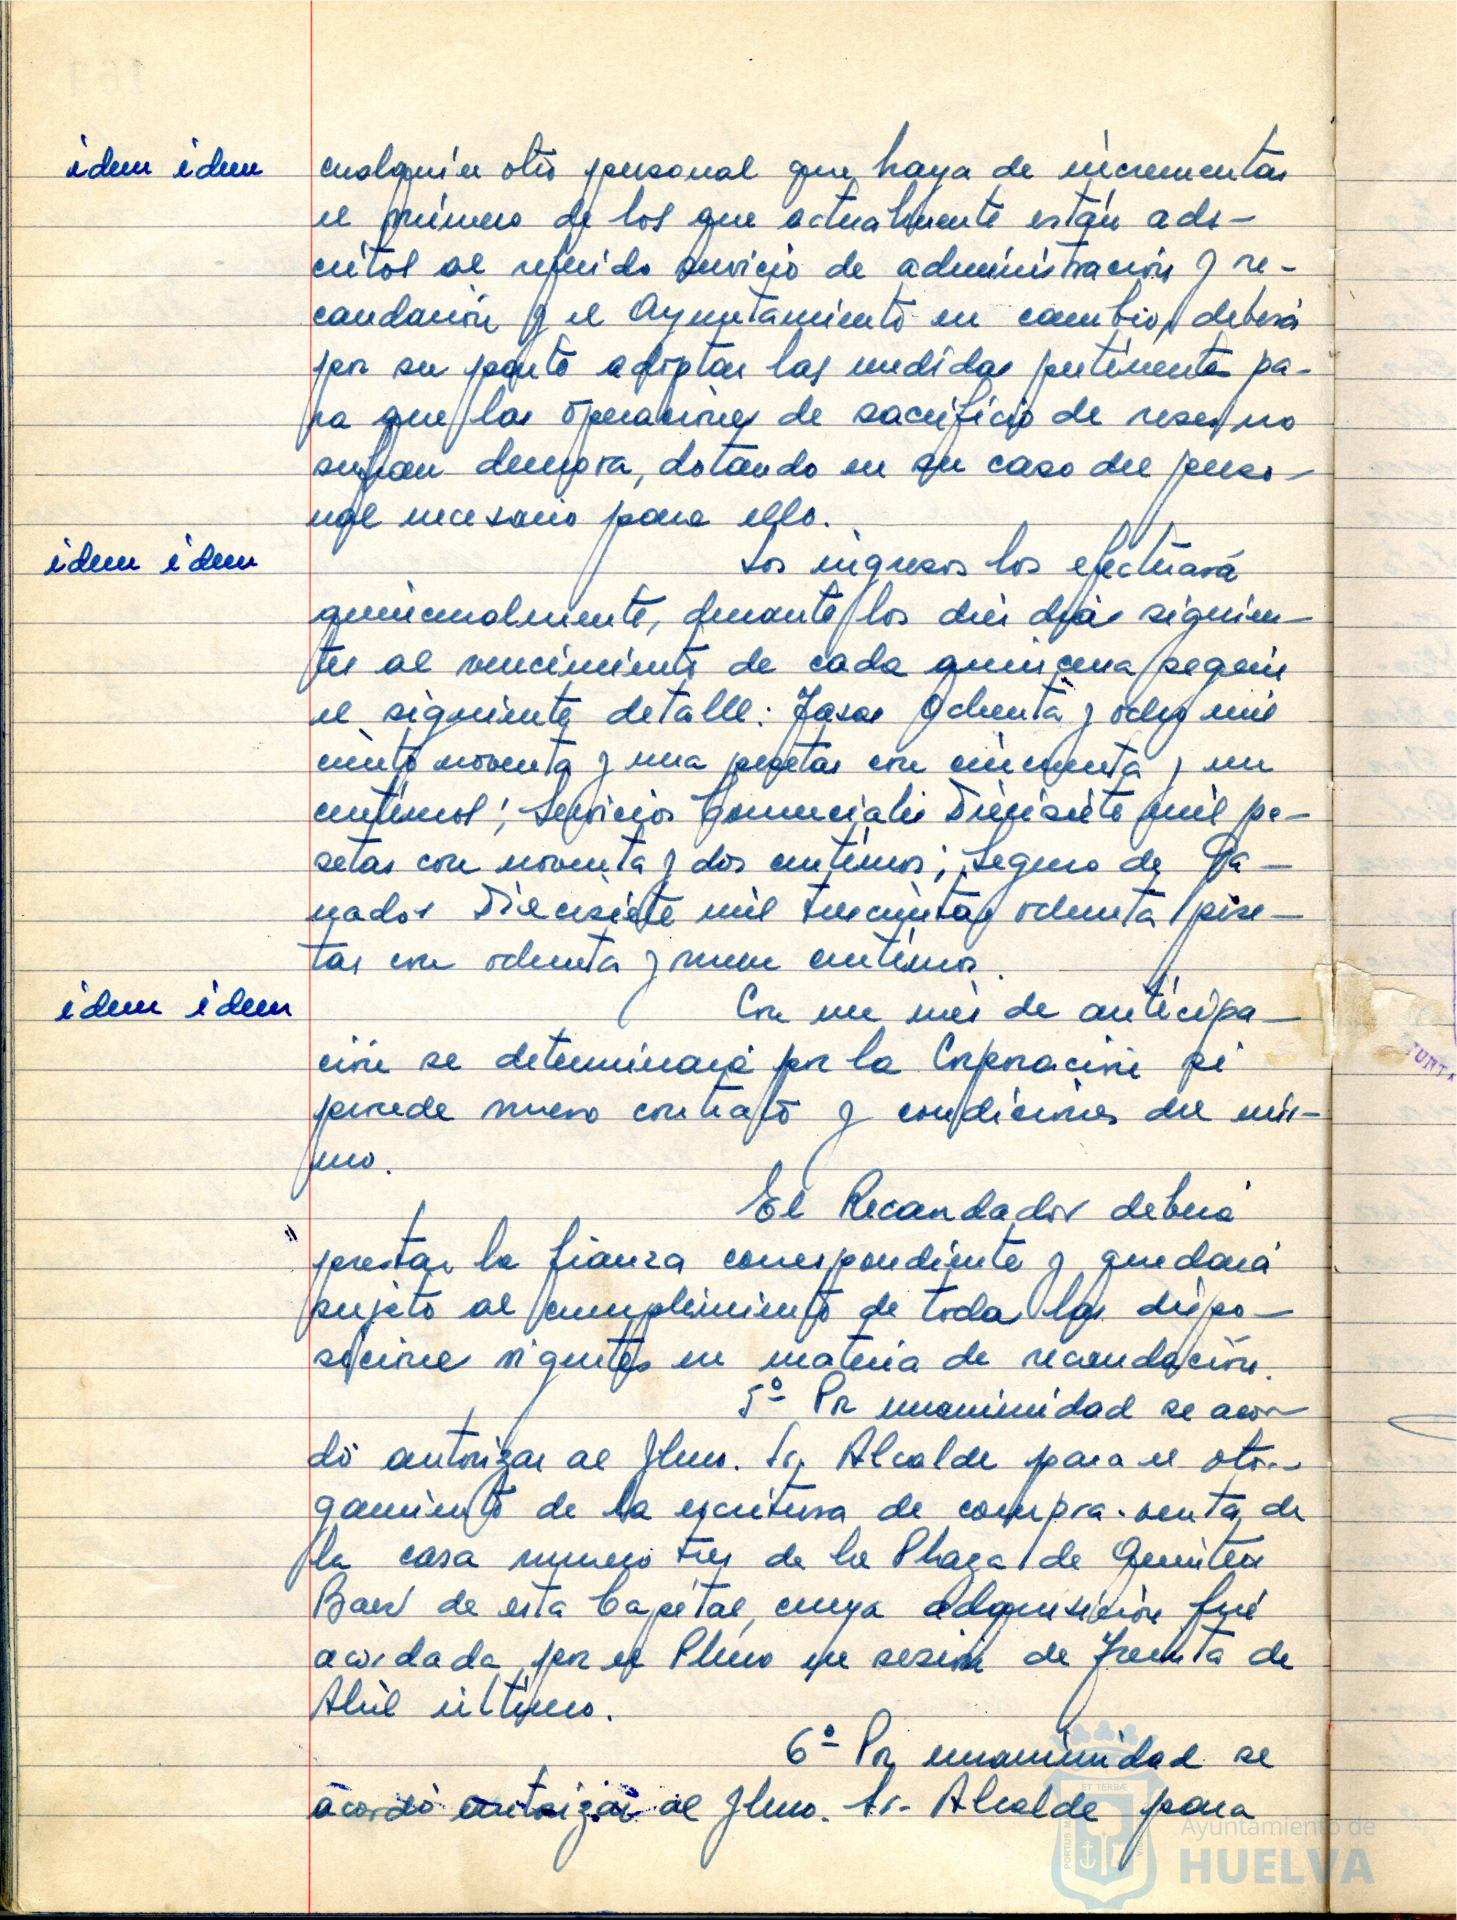 idem idem
cualquier otro personal que haya de incrementar
el número de los que actualmente están ads-
critos al referido servicio de administración y re-
caudación y el Ayuntamiento en cambio, deberá
por su parte adoptar las medidas pertinentes pa-
ra que las operaciones de sacrificio de reses no
sufran demora, dotando en su caso del perso-
nal necesario para ello.
idem idem
Los ingresos los efectuará
quincenalmente, durante los diez días siguien-
tes al vencimiento de cada quincena según
el siguiente detalle: Tasas Ochenta y ocho mil
ciento noventa y una pesetas con cincuenta y un
centimos; Servicios Comerciales Diecisiete mil pe-
setas con noventa y dos centimos; Seguro de Ga-
nados Diecisiete mil trescientas ochenta pese-
tas con ochenta y nueve centimos.
idem idem
Con un mes de anticipa-
ción se determinará por la Corporación si
procede nuevo contrato y condiciones del mis-
mo.
El Recaudador deberá
"
prestar la fianza correspondiente y quedará
sujeto al cumplimiento de todas las dispo-
siciones vigentes en materia de recaudación.
5º Por unanimidad se acor-
dó autorizar al Ilmo. Sr. Alcalde para el otor-
gamiento de la escritura de compra-venta de
la casa numero tres de la Plaza de Quintero
Baez de esta Capital, cuya adquisición fué
acordada por el Pleno en sesión de Treinta de
Abril último.
6º Por unanimidad se
acordó autorizar al Ilmo. Sr. Alcalde para
ET TERRÆ
PORTUS M
Ayuntamiento de
HUELVA